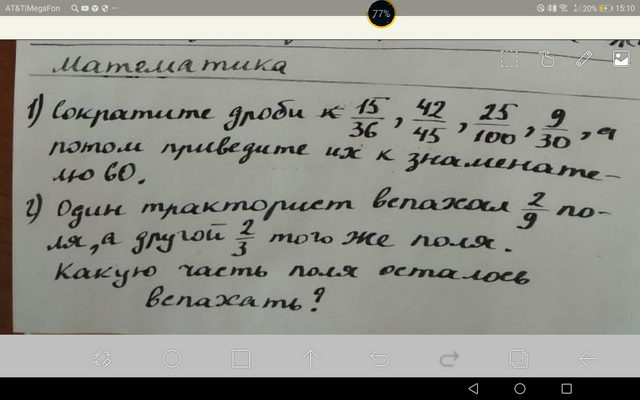 AT&T|MegaFon
77%
20% 15:10
Математика
1) Сократите дроби к 15/36, 42/45, 25/100, 9/30, а
потом приведите их к знаменате-
лю 60.
2) Один тракторист вспахал 2/9 по-
ля, а другой 2/3 того же поля.
Какую часть поля осталось
вспахать?